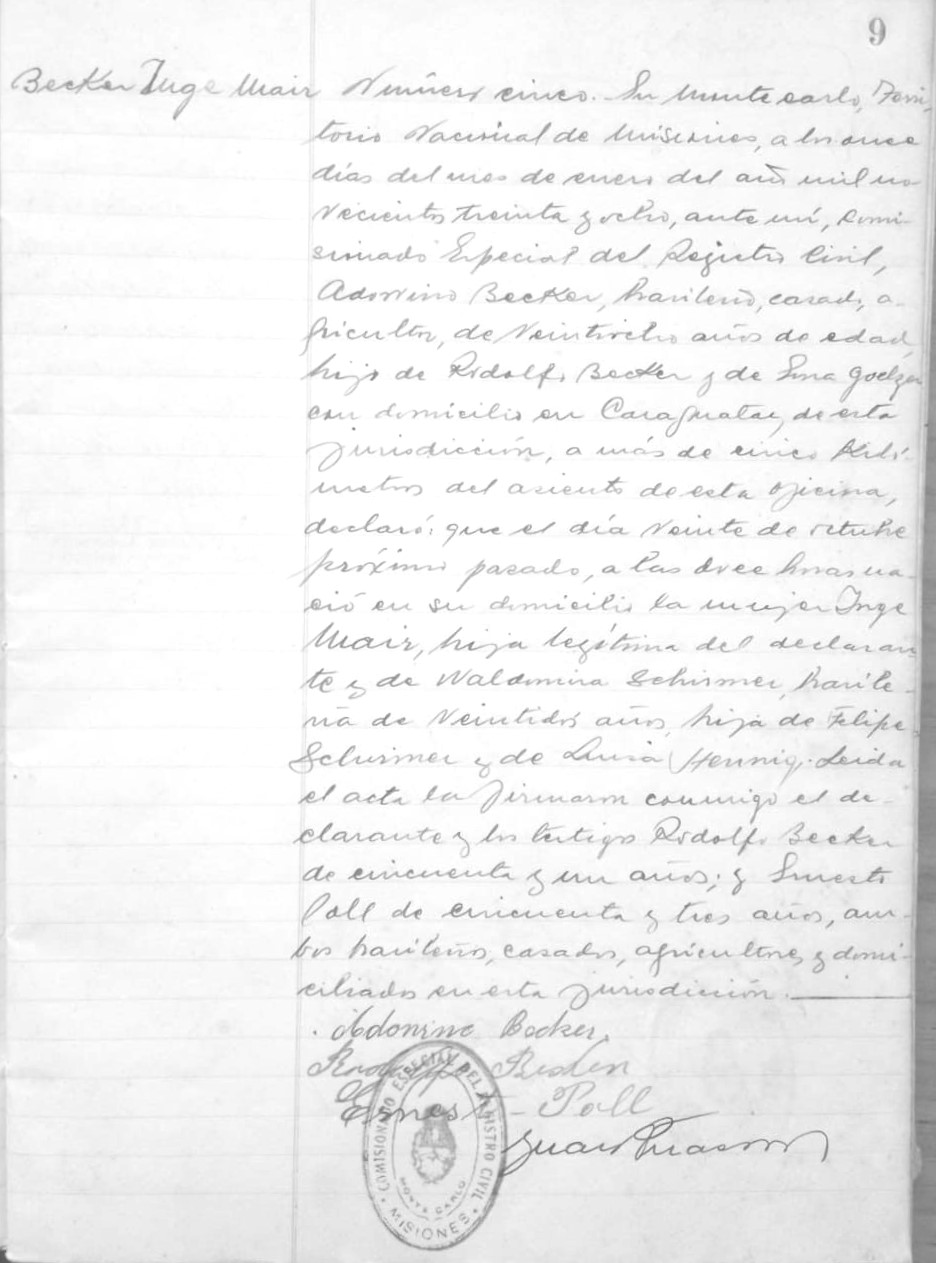 9
Becker Inge Mair Número cinco. En Monte carlo, Terri-
torio Nacional de Misiones, a los once
días del mes de enero del año mil no-
vecientos treinta y ocho, ante mí, Comi-
sionado Especial del Registro Civil,
Adorvino Becker, brasileño, casado, a-
gricultor, de veintiocho años de edad,
hijo de Rodolfo Becker y de Ema Goelzer
con domicilio en Caraguatay, de esta
jurisdicción, a más de cinco kiló-
metros del asiento de esta oficina,
declaró: que el día veinte de octubre
próximo pasado, a las doce horas na-
ció en su domicilio la mujer Inge
Mair, hija legítima del declaran-
te y de Waldomira Schirmer, brasile-
ña de veintidós años, hija de Felipe
Schirmer y de Luisa Hennig. Leida
el acta la firmaron conmigo el de-
clarante y los testigos Rodolfo Becker
de cincuenta y un años; y Ernesto
Poll de cincuenta y tres años, am-
bos brasileños, casados, agricultores y domi-
ciliados en esta jurisdicción.
Adonino Becker.
Ernest Poll
Juan
COMISIONADO ESPECIAL DEL REGISTRO CIVIL
MONTE CARLO
MISIONES